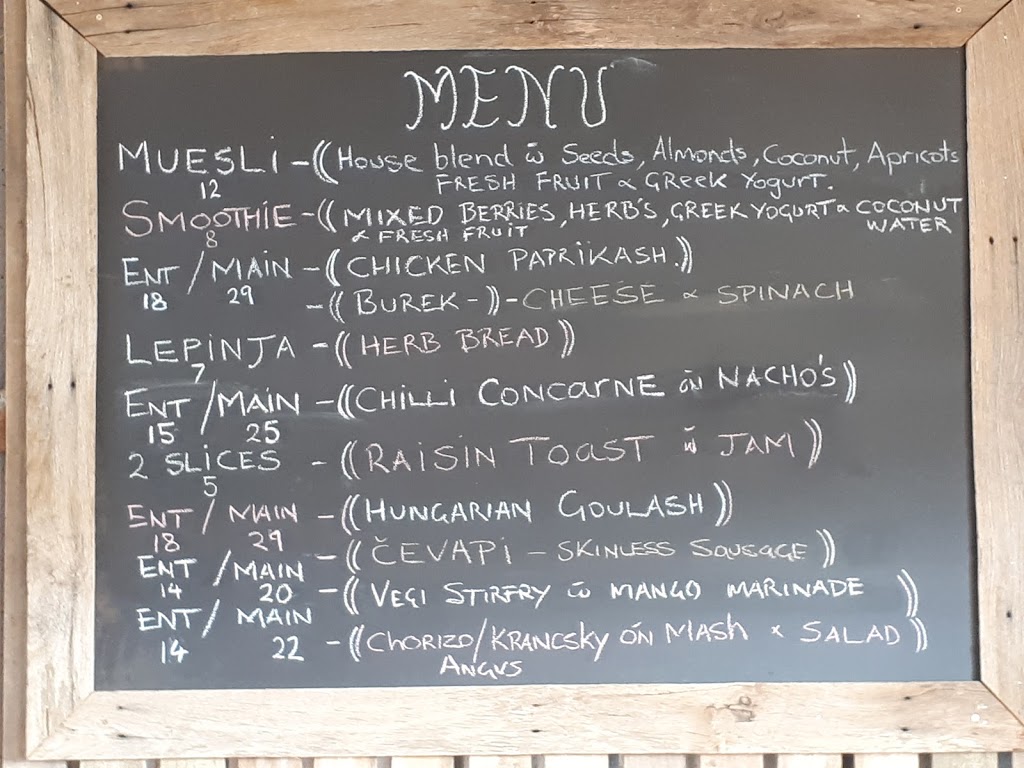 MENU
MUESLi -(( House blend w̄ Seeds, Almonds, Coconut, Apricots
12 FRESH FRUIT & GReek Yogurt.
SMOOTHiE -(( MIXED BERRIES, HERB'S, GREEK YOGURT & COCONUT
8 & FRESH FRUIT WATER
ENT / MAIN -(( CHICKEN PAPRIKASH.))
18 29 -(( BUREK - )) - CHEESE & SPINACH
LEPiNJA -(( HERB BREAD ))
7
ENT / MAIN -(( CHILLi CONCARNE ON NACHO'S ))
15 25
2 SLiCES - (( RAISIN TOAST w̄ JAM ))
5
ENT / MAIN - (( HUNGARIAN GOULASH ))
18 29 - (( ČEVAPi - SKINLESS SOUSAGE ))
ENT / MAIN
14 20 - (( VEGI STIRFRY w̄ MANGO MARINADE ))
ENT / MAIN
14 22 - (( CHORIZO/KRANCSKY ON MASH & SALAD ))
ANGUS